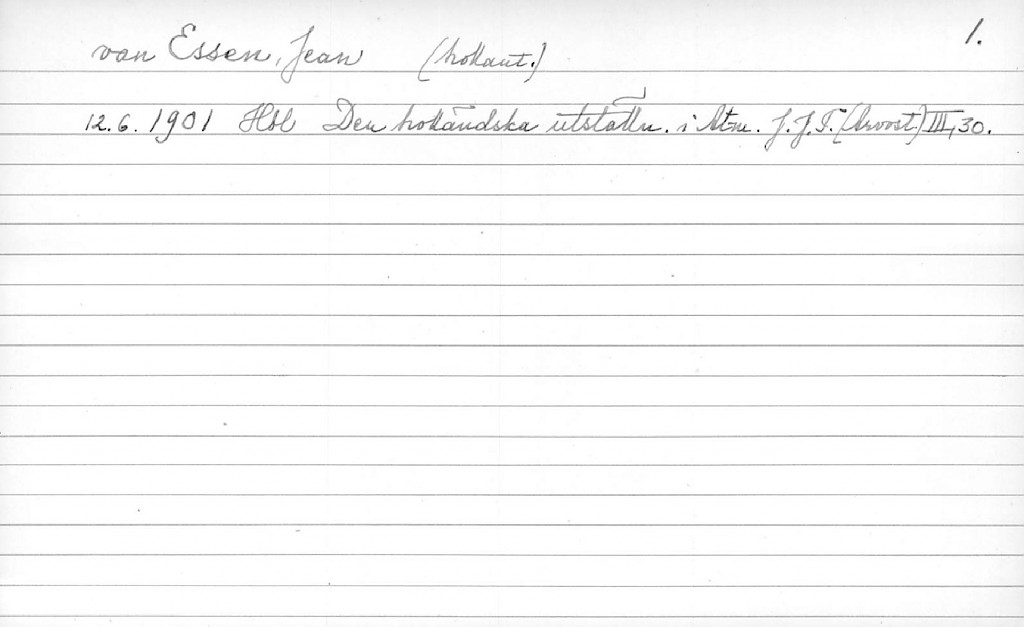 1.
van Essen, Jean (hollant.)
12.6.1901 Hbl Den holländska utställn. i Atm. J.J.T. (Arvost.) III, 30.